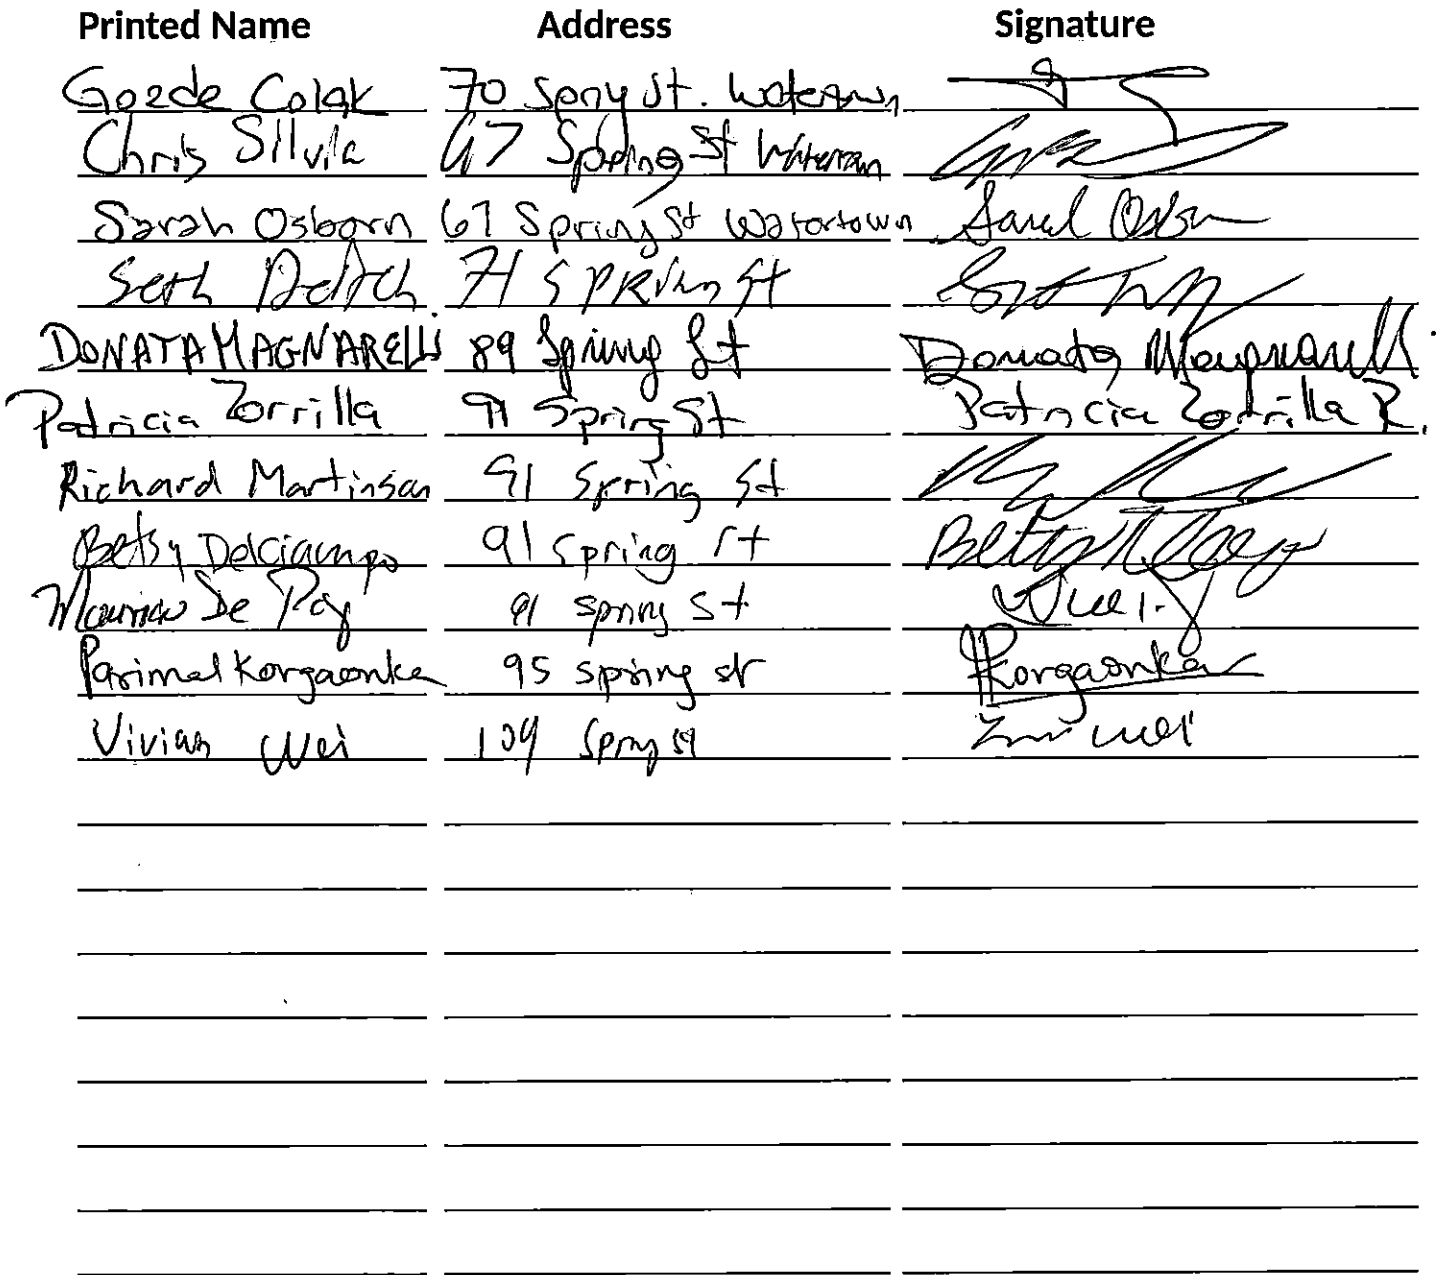 Printed Name Address Signature
Gozde Colak 70 Spring St. Watertown
Chris Silvia 67 Spring St Watertown
Sarah Osborn 67 Spring St Watertown Sarah Osborn
Seth Deitch 71 Spring St
DONATA MAGNARELLI 89 Spring St Donata Magnarelli
Patricia Zorrilla 91 Spring St Patricia Zorrilla R.
Richard Martinson 91 Spring St
Betsy Delciampo 91 Spring St Betsy
De Paz 91 Spring St
Parimal Korgaonkar 95 spring st PKorgaonkar
Vivian Wei 109 Spring St Wei